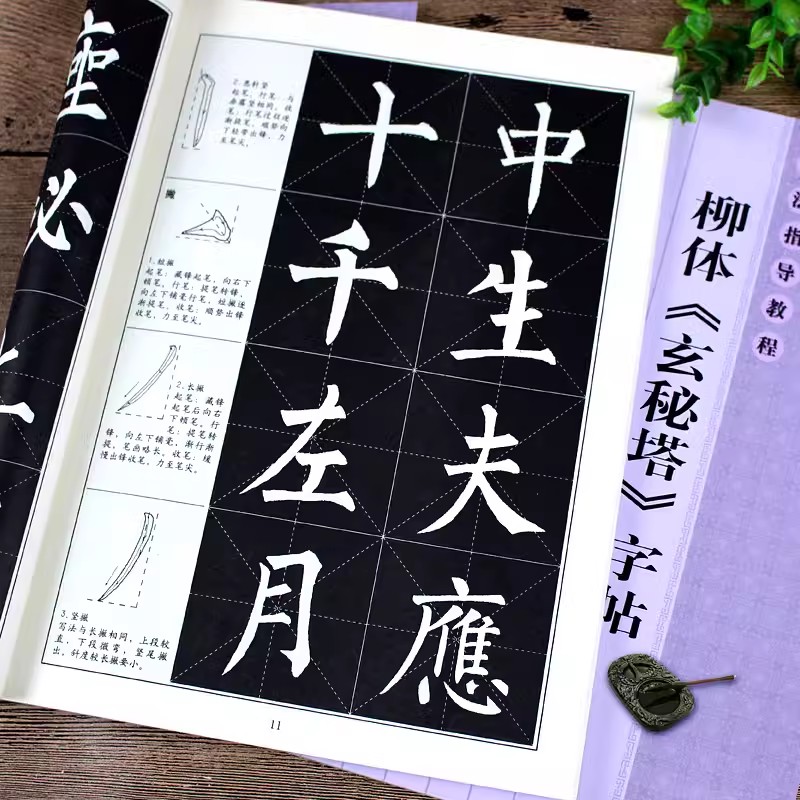 2.悬针竖
起笔、行笔：与
垂露竖相同，收
笔：行笔过程逐
渐提笔，顺势向
下轻带出锋，力
至笔尖。
撇
1.短撇
起笔：藏锋起笔，向右下
顿笔。行笔：提笔转锋，
向左下铺毫行笔，短撇逐
渐提笔。收笔：顺势出锋
收笔，力至笔尖。
2.长撇
起笔：藏锋
起笔后向右
下顿笔。行
笔：提笔转
锋，向左下铺毫，渐行渐
提，笔画略长。收笔：缓
慢出锋收笔，力至笔尖。
3.竖撇
写法与长撇相同，上段较
直，下段微弯，竖尾撇
出，斜度较长撇要小。
中生夫應
十千左月
11
法指导教程
柳体《玄秘塔》字帖